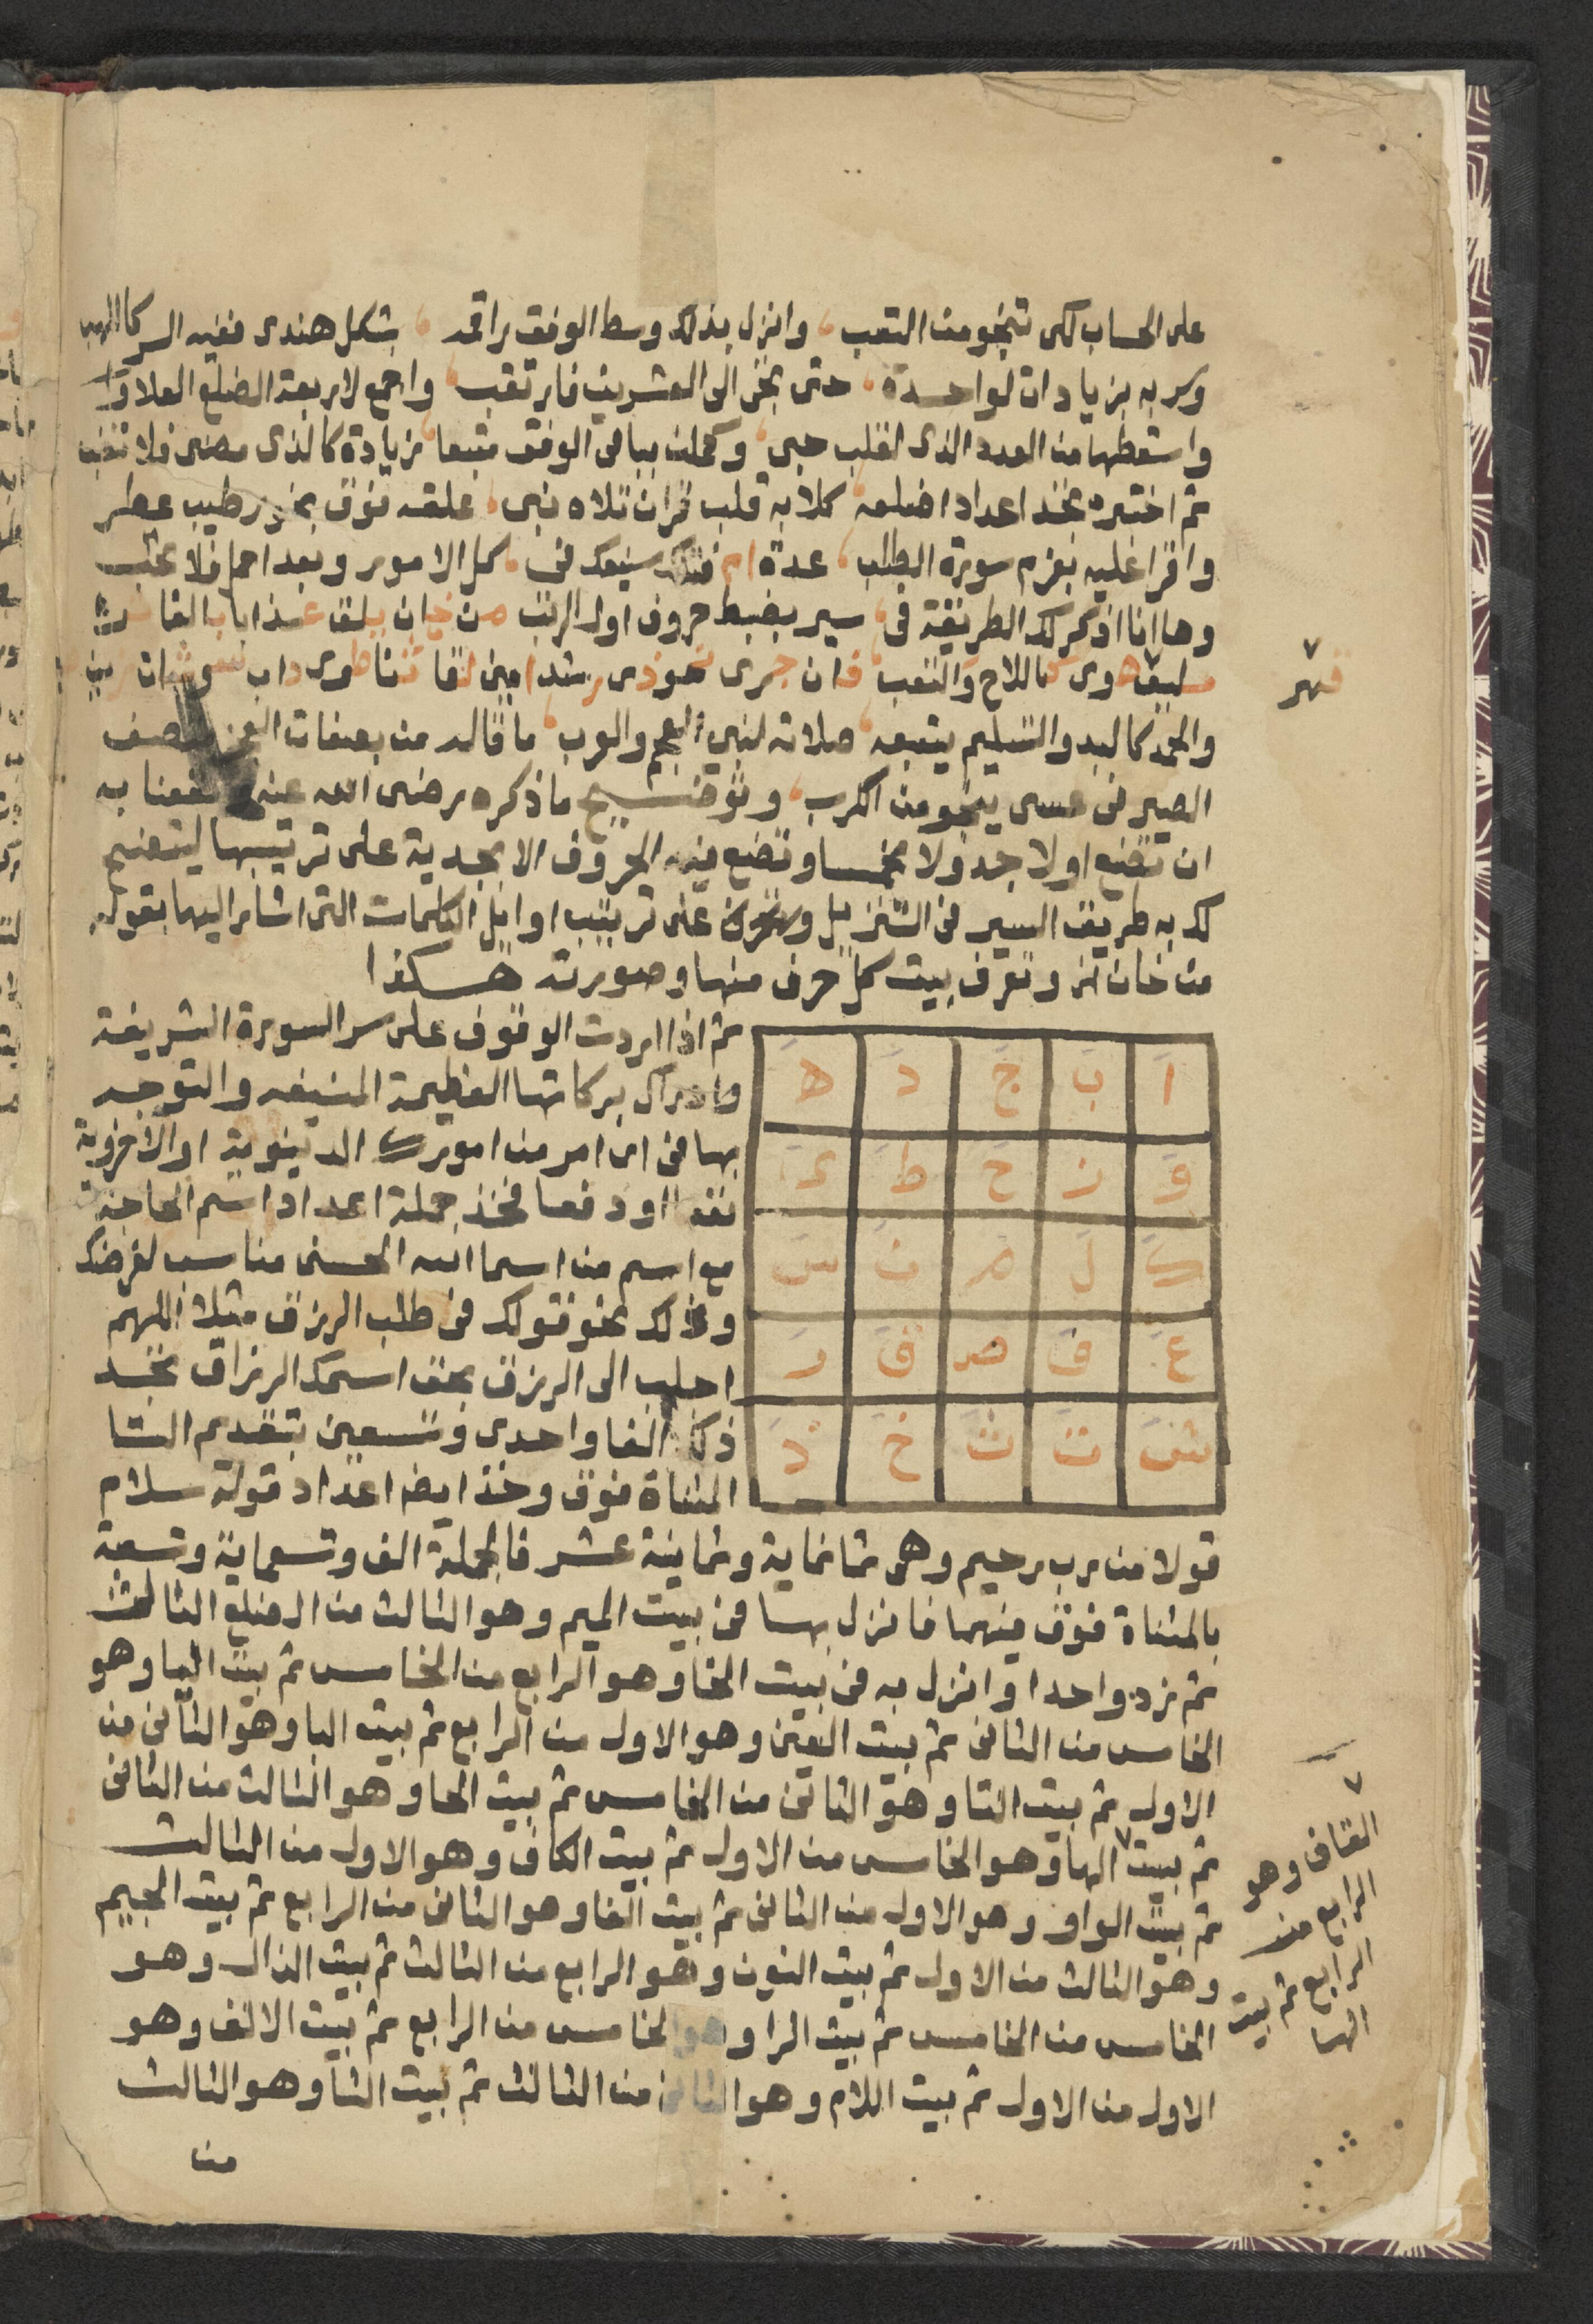 على الحساب لكى تنجو من التعب ، وانزل بذلك وسط الوفق راقمه ، بشكل هندى ففيه السر كاللهب
وسر به بزيادات لواحدة ، حتى تجى الى العشرين فارتقب ، واجمع لاربعة الضلع العلا
واسقطها من العدد الذى لقلب حبى ، وكملن بباقى الوفق متبعا ، زيادة كالذى مضى فلا تغب
ثم اختبره تجد اعداد اضلعه ، كلا به قلب قران تلاه نبى ، علقه فوق بخور طيب عطر
واقرا عليه بعزم سورة الطلب ، عدة ، كل الامور وبعد احما فلا تخب
وها انا اذكر لك الطريقة فى ، سير بضبط حروف اول الرتب من خان
هوى والتعب فان جرى
والحمد كالبدو التسليم يتبعه ، صلاته لنبى العجم والعرب ، ما قاله من بصفات
الصير فى عسى ينجو من الكرب ، وتوضيح ما ذكره رضى الله عنه ونفعنا به
ان تضع اولا جدولا مخمسا وتضع فيه الحروف الابجدية على ترتيبها ليتضح
لك به طريق السير فى التنزيل على ترتيب اوايل الكلمات التى اشار اليها بقوله
من خان الخ وتعرف بيت كل حرف منها وصورته هكذا
ا ب ج د ه
و ز ح ط ى
ك ل م ن س
ع ف ص ق ر
ش ت ث خ ذ
ثم اذا اردت الوقوف على سر السورة الشريفة
وادراك بركاتها العظيمة المنيفه والتوجه
بها فى اى امر من امورك الدنيوية او الاخروية
نفعا او دفعا فخذ جملة اعداد اسم الحاجة
مع اسم من اسما الله الحسنى مناسب لغرضك
وذلك نحو قولك فى طلب الرزق مثلا اللهم
اجلب الى الرزق بحق اسمك الرزاق تجد
ذلك الفا واحدى وتسعين بتقديم التا
المثناة فوق وخذ ايضا اعداد قوله سلام
قولا من رب رحيم وهى ثمانماية وثمانية عشر فالجملة الف وتسعماية وتسعة
بالمثناة فوق فيهما فانزل بها فى بيت الميم وهو الثالث من الضلع الثالث
ثم زد واحدا وانزل به فى بيت الخا وهو الرابع من الخامس ثم بيت اليا وهو
الخامس من الثانى ثم بيت العين وهو الاول من الرابع ثم بيت البا وهو الثانى من
الاول ثم بيت التا وهو الثانى من الخامس ثم بيت الحا وهو الثالث من الثانى
ثم بيت الها وهو الخامس من الاول ثم بيت الكاف وهو الاول من الثالث
ثم بيت الواو وهو الاول من الثانى ثم بيت الفا وهو الثانى من الرابع ثم بيت الجيم
وهو الثالث من الاول ثم بيت النون وهو الرابع من الثالث ثم بيت الذال وهو
الخامس من الخامس ثم بيت الرا وهو الخامس من الرابع ثم بيت الالف وهو
الاول من الاول ثم بيت اللام وهو الثانى من الثالث ثم بيت الثا وهو الثالث
من
القاف وهو
الرابع من
الرابع ثم بيت
الها